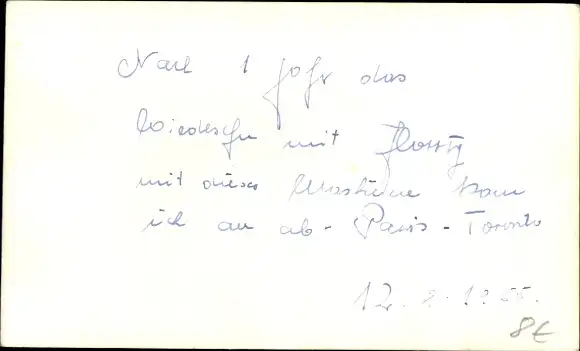 Nach 1 Jahr das
Wiedersehn mit
mit dieser Maschine kam
ich an ab - Paris - Toronto
12. 1955.
8€